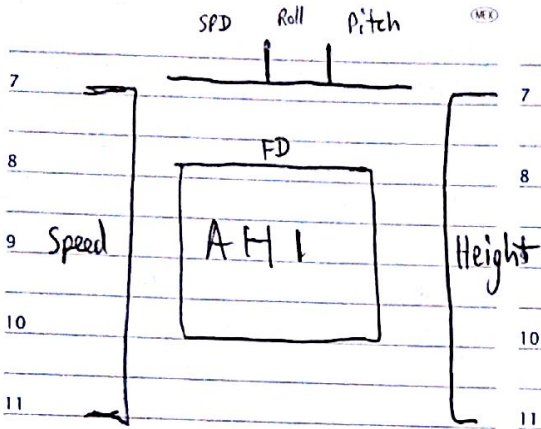 SPD Roll Pitch
MEX
7 7
FD
8 8
9 Speed AHI Height
10 10
11 11